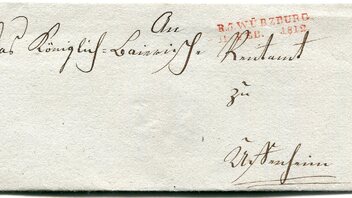 An
R.3.WÜRZBURG.
FEB. 1812.
das Königlich=Baierische Rentamt
zu
Uffenheim